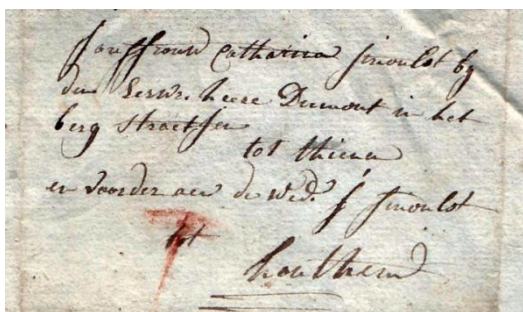 Jouffrouw Catharina Simoulot by
den Eerw. heere Dumont in het
berg straetsen
tot thienen
en voorder aen de Wed. J Simoulot
tot
houthem